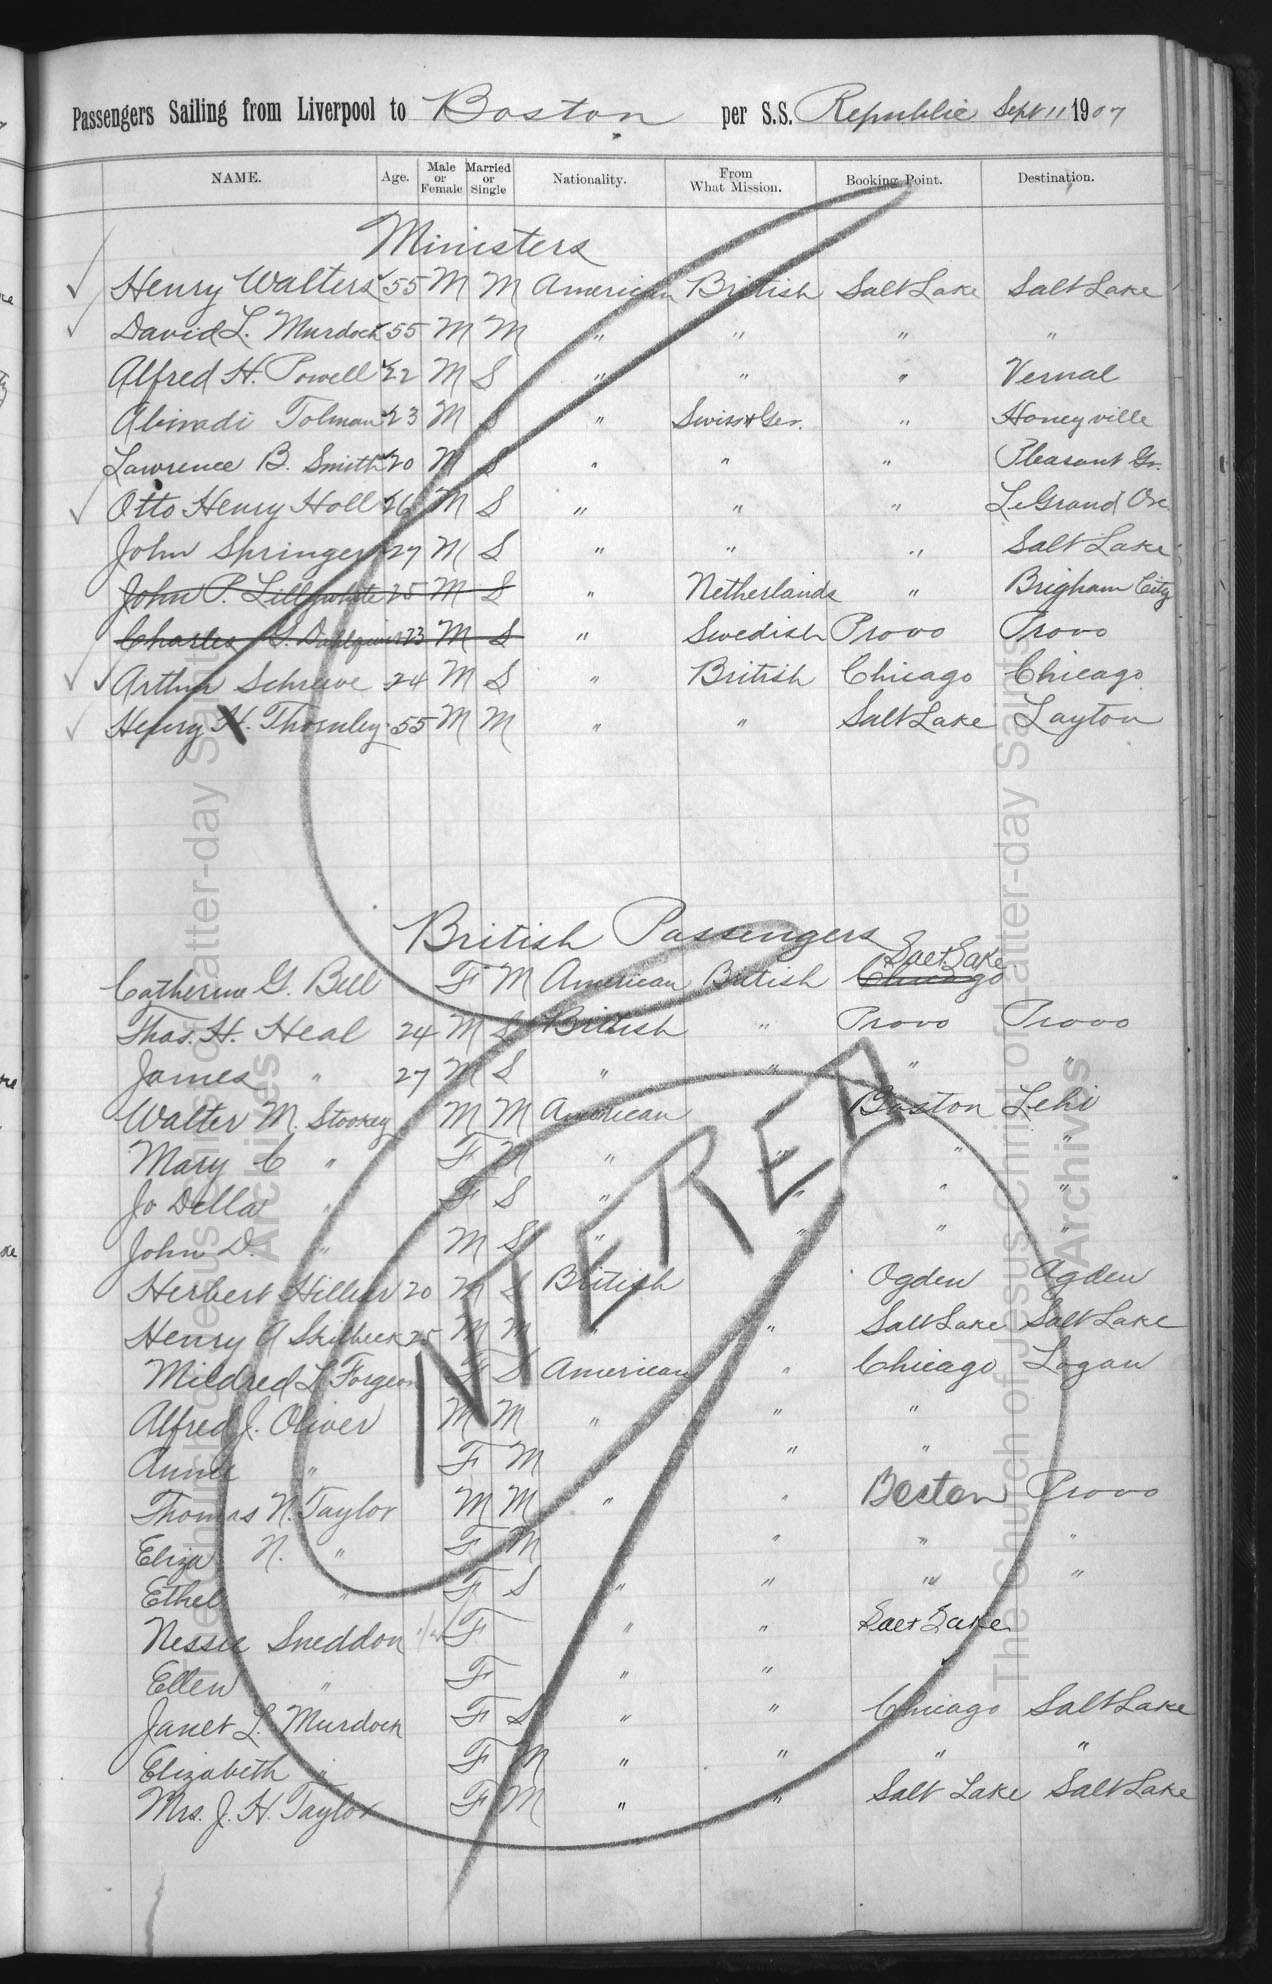 Passengers Sailing from Liverpool to Boston per S.S. Republic Sept 11 1907
NAME. Age. Male or Female Married or Single Nationality. From What Mission. Booking Point. Destination.
Ministers
Henry Walters 55 M M American British Salt Lake Salt Lake
David L. Murdock 55 M M " " " "
Alfred H. Powell 22 M S " " " Vernal
Abinadi Tolman 23 M S " Swiss & Ger. " Honeyville
Lawrence B. Smith 20 M S " " " Pleasant Gr.
Otto Henry Holl 26 M S " " " LeGrand Ore.
John Springer 27 M S " " " Salt Lake
John P. Lillywhite 25 M S " Netherlands " Brigham City
Charles 23 M S " Swedish Provo Provo
Arthur Schreeve 24 M S " British Chicago Chicago
Henry H. Thornley 55 M M " " Salt Lake Layton
British Passengers
Salt Lake
Catherine G. Bell F M American British Chicago
Thos. H. Heal 24 M S British " Provo Provo
James " 27 M S " " " "
Walter M. Stookey M M American " Boston Lehi
Mary C " F M " " " "
Jo Della " F S " " " "
John D. " M S " " " "
Herbert Hillier 20 M S British " Ogden Ogden
Henry A Skidbeck 25 M M " " Salt Lake Salt Lake
Mildred L. Forgeon F S American " Chicago Logan
Alfred J. Oliver M M " " "
Annie " F M " "
Thomas N. Taylor M M " " Boston Provo
Eliza N. " F M " " "
Ethel " F S " " " "
Nessie Sneddon F " " Salt Lake
Ellen " F " "
Janet L. Murdock F S " " Chicago Salt Lake
Elizabeth " F M " " " "
Mrs. J. H. Taylor F M " " Salt Lake Salt Lake
ENTERED
The Church of Jesus Christ of Latter-day Saints
Archives
The Church of Jesus Christ of Latter-day Saints
Archives